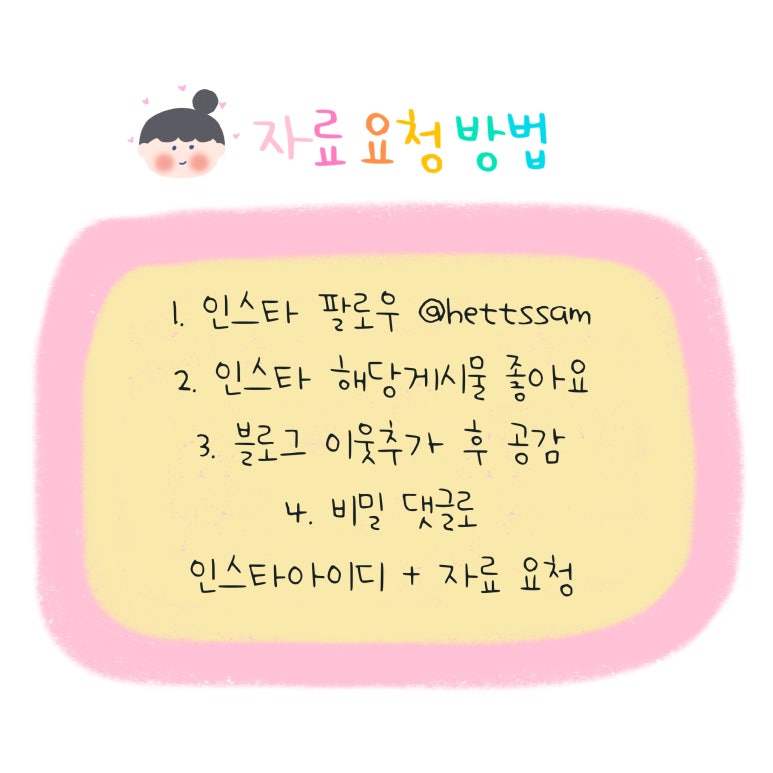 자료 요청 방법
1. 인스타 팔로우 @hettssam
2. 인스타 해당게시물 좋아요
3. 블로그 이웃추가 후 공감
4. 비밀 댓글로
인스타아이디 + 자료 요청